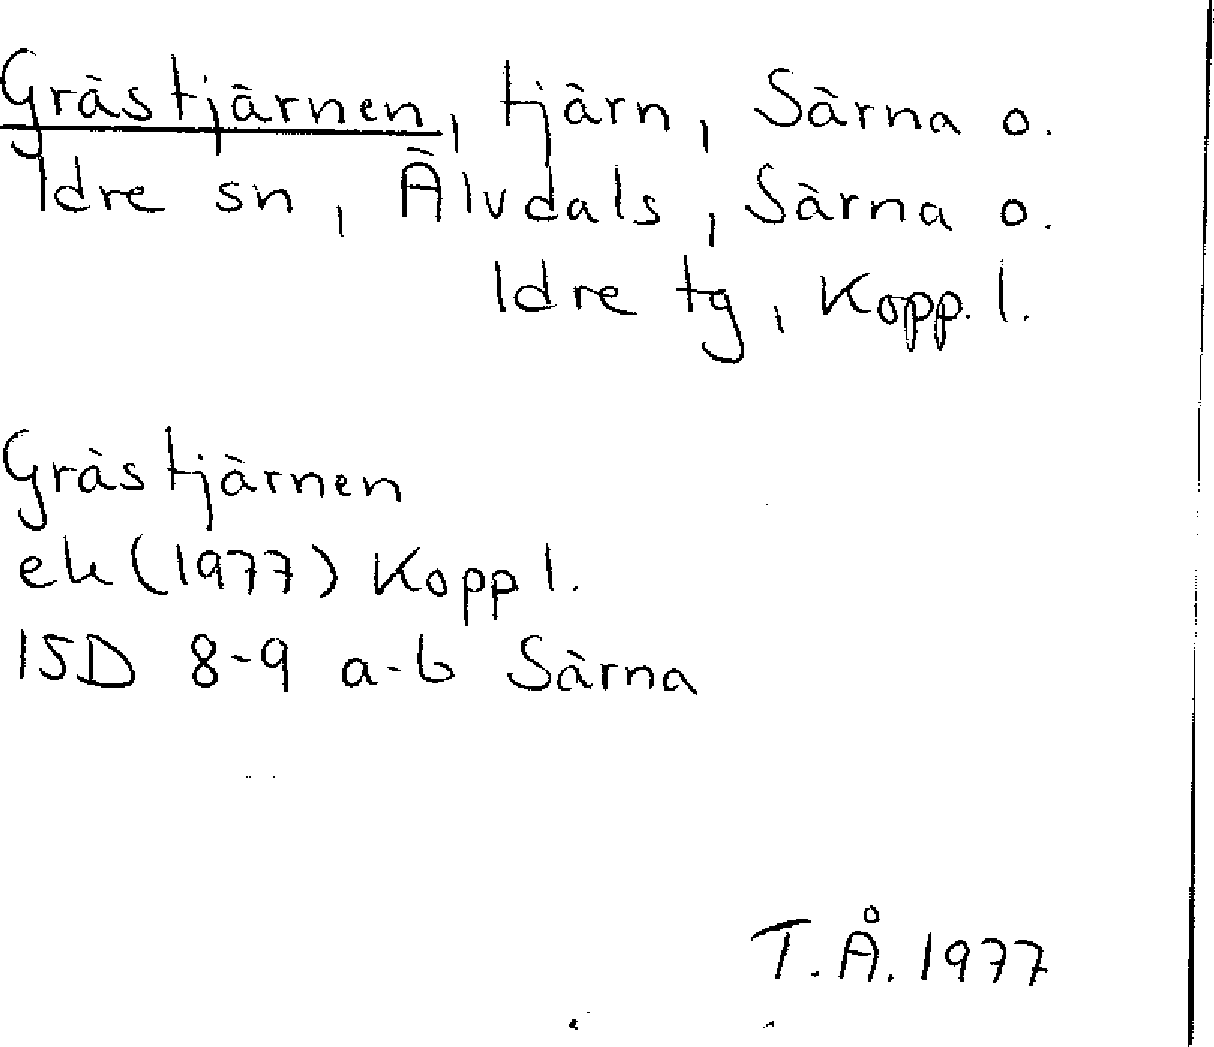 Grästjärnen, tjärn, Särna o.
Idre sn, Älvdals, Särna o.
Idre tg, Kopp. l.
Grästjärnen
ek (1977) Kopp l.
15D 8-9 a-b Särna
T. Å. 1977